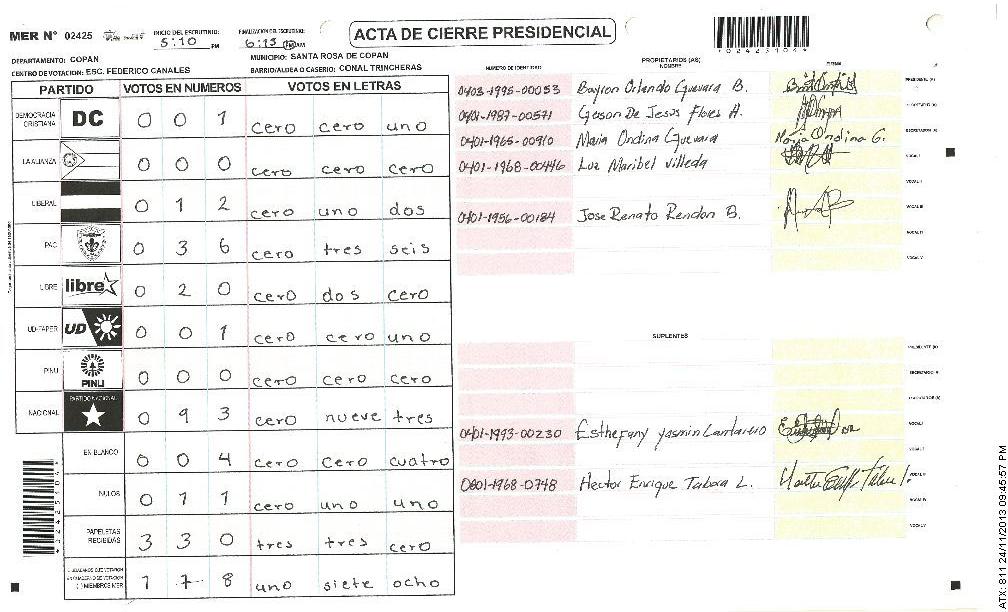 MER N° 02425
INICIO DEL ESCRUTINIO: 5:10 PM
FINALIZACION DEL ESCRUTINIO: 6:15 PM AM
ACTA DE CIERRE PRESIDENCIAL
DEPARTAMENTO: COPAN
MUNICIPIO: SANTA ROSA DE COPAN
CENTRO DE VOTACION: ESC. FEDERICO CANALES
BARRIO/ALDEA O CASERIO: CONAL TRINCHERAS
PARTIDO VOTOS EN NUMEROS VOTOS EN LETRAS
DEMOCRACIA CRISTIANA DC 0 0 1 cero cero uno
LA ALIANZA 0 0 0 cero cero cero
LIBERAL 0 1 2 cero uno dos
PAC 0 3 6 cero tres seis
LIBRE libre 0 2 0 cero dos cero
UD-FAPER UD 0 0 1 cero cero uno
PINU PINU 0 0 0 cero cero cero
NACIONAL PARTIDO NACIONAL 0 9 3 cero nueve tres
EN BLANCO 0 0 4 cero cero cuatro
NULOS 0 1 1 cero uno uno
PAPELETAS RECIBIDAS 3 3 0 tres tres cero
MIEMBROS MER 1 7 8 uno siete ocho
NUMERO DE IDENTIDAD
PROPIETARIOS (AS)
NOMBRE
FIRMA
0403-1995-00053 Bayron Orlando Guevara B.
0401-1987-00571 Geson De Jesus Flores A.
0401-1965-00910 Maria Ondina Guevara Maria Ondina G.
0401-1968-00446 Luz Maribel Villeda
0401-1956-00184 Jose Renato Rendon B.
SUPLENTES
0401-1993-00230 Esthefany Yasmin Lantareno
0801-1968-0748 Hector Enrique Tabora L.
ATX: 811 24/11/2013 09:45:57 PM